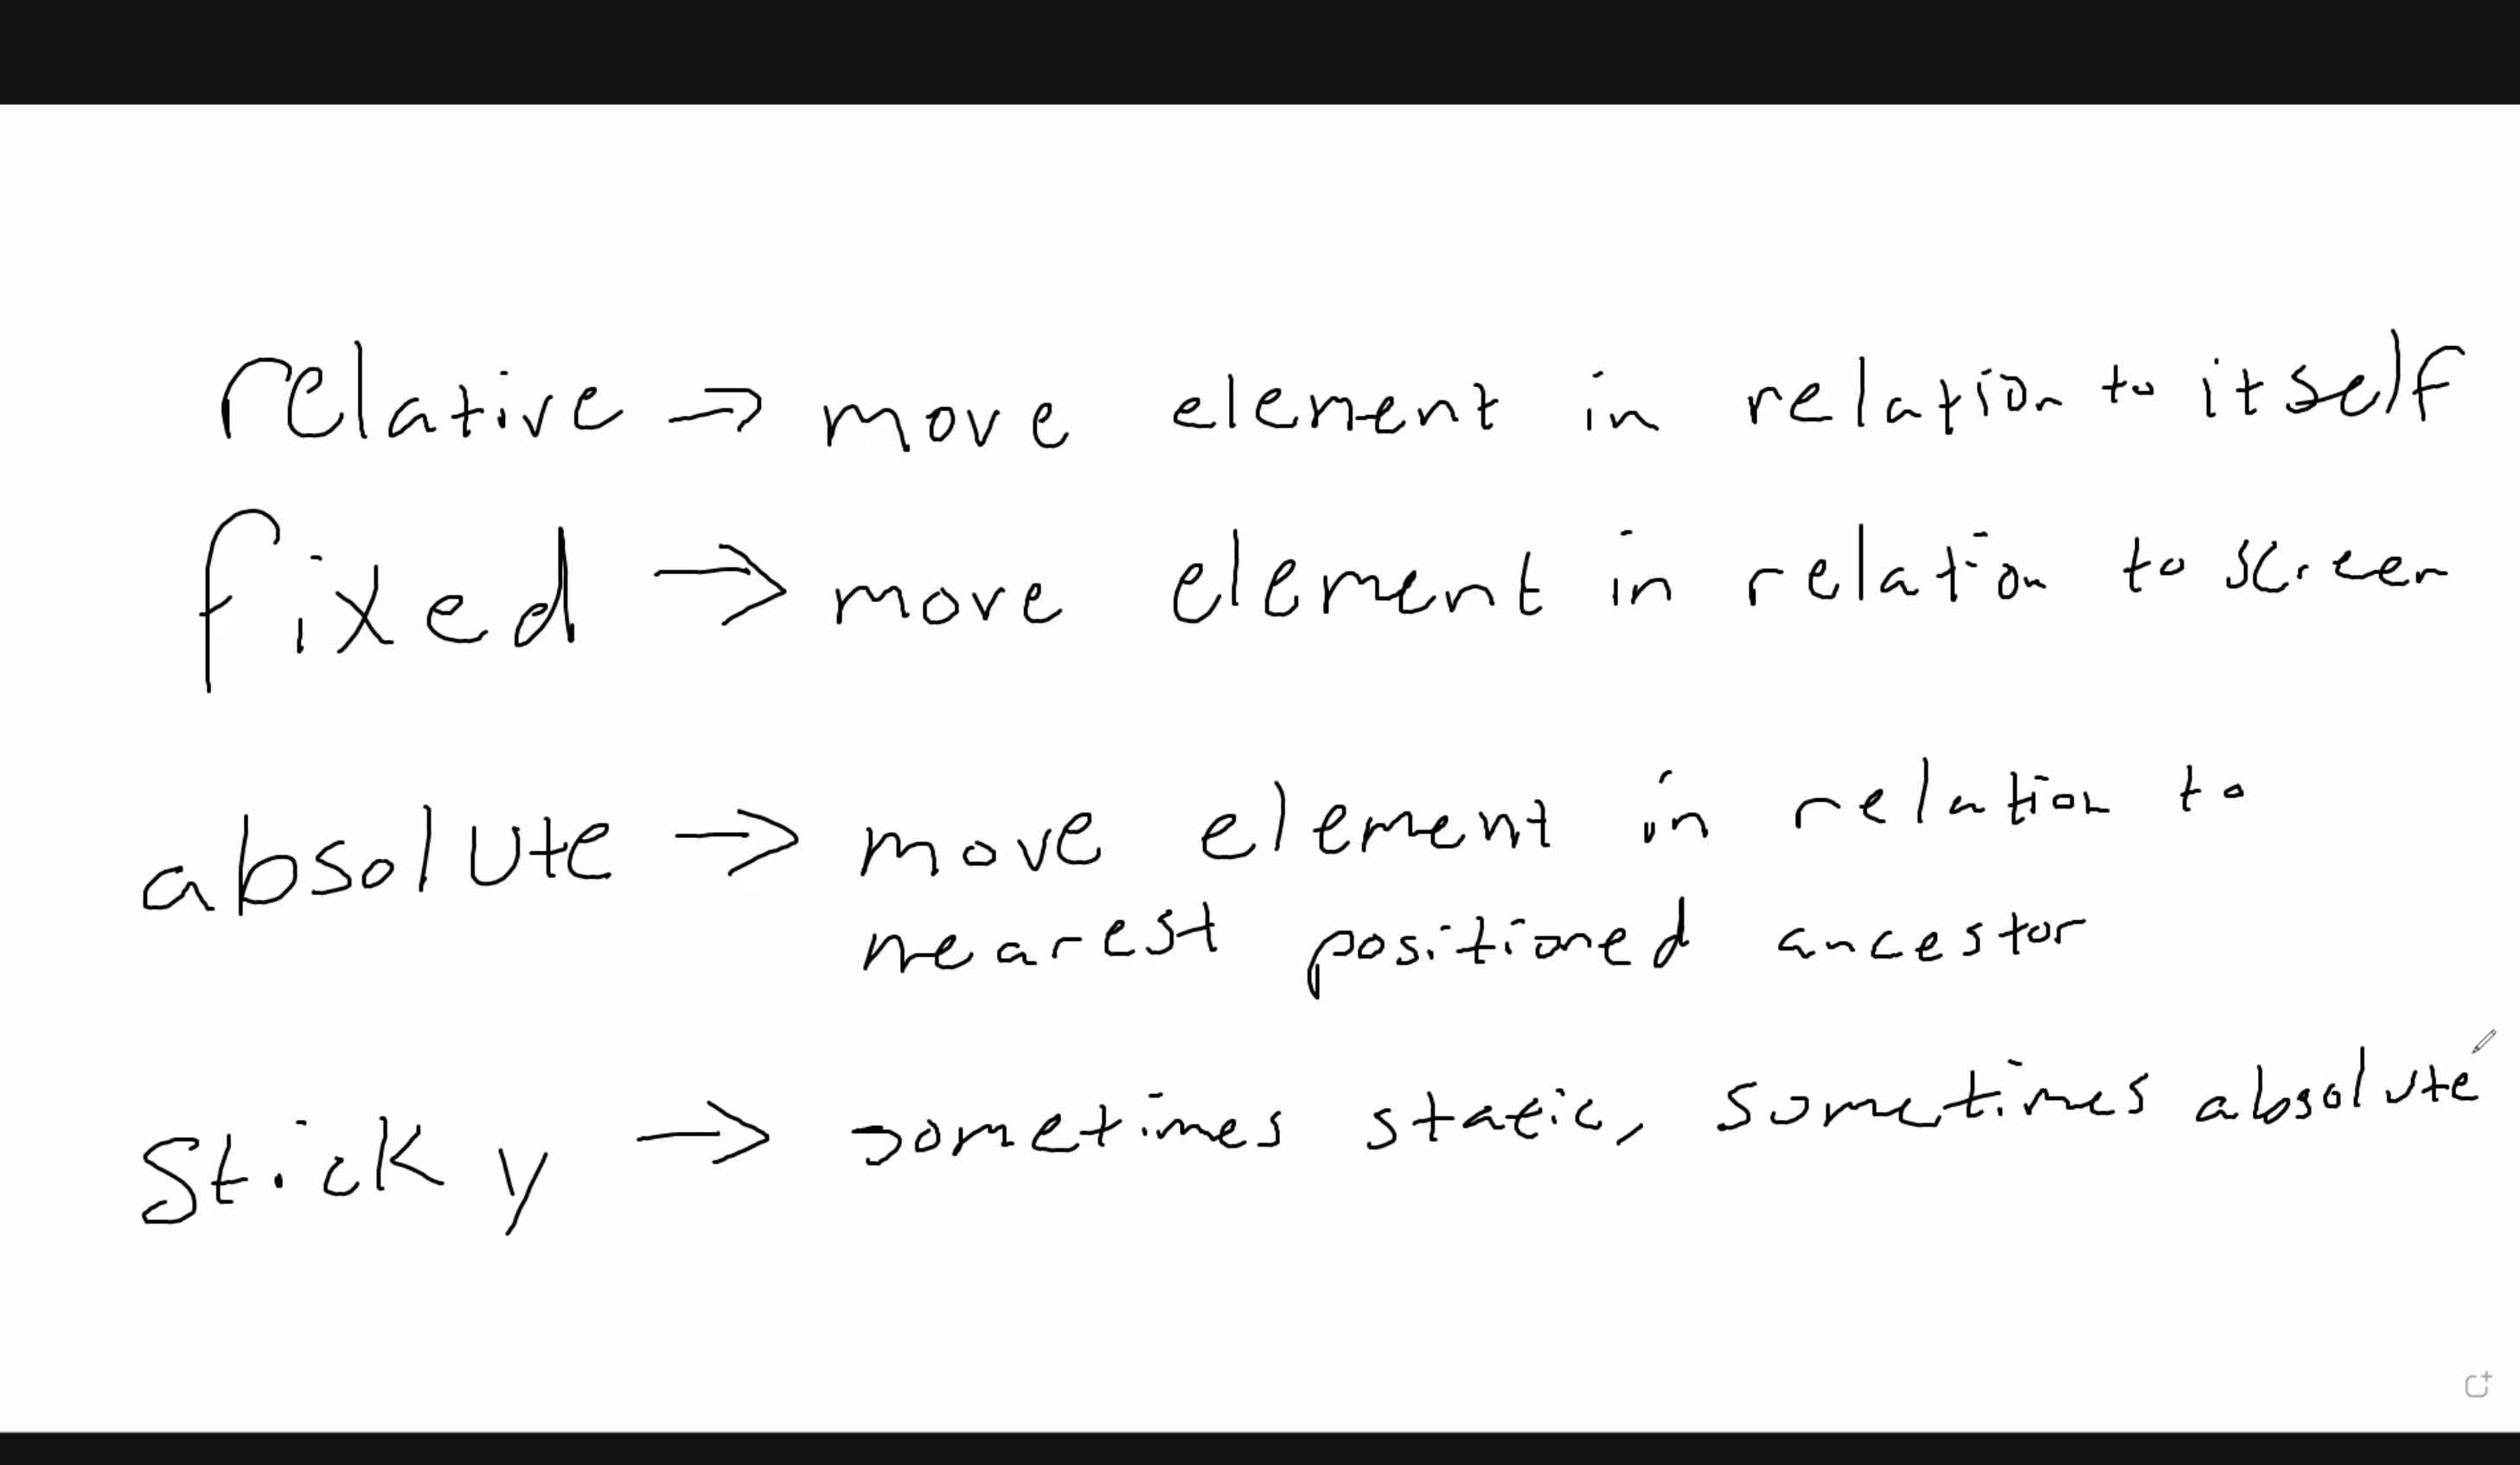 relative → move element in relation to itself
fixed → move element in relation to screen
absolute → move element in relation to
nearest positioned ancestor
sticky → sometimes static, sometimes absolute